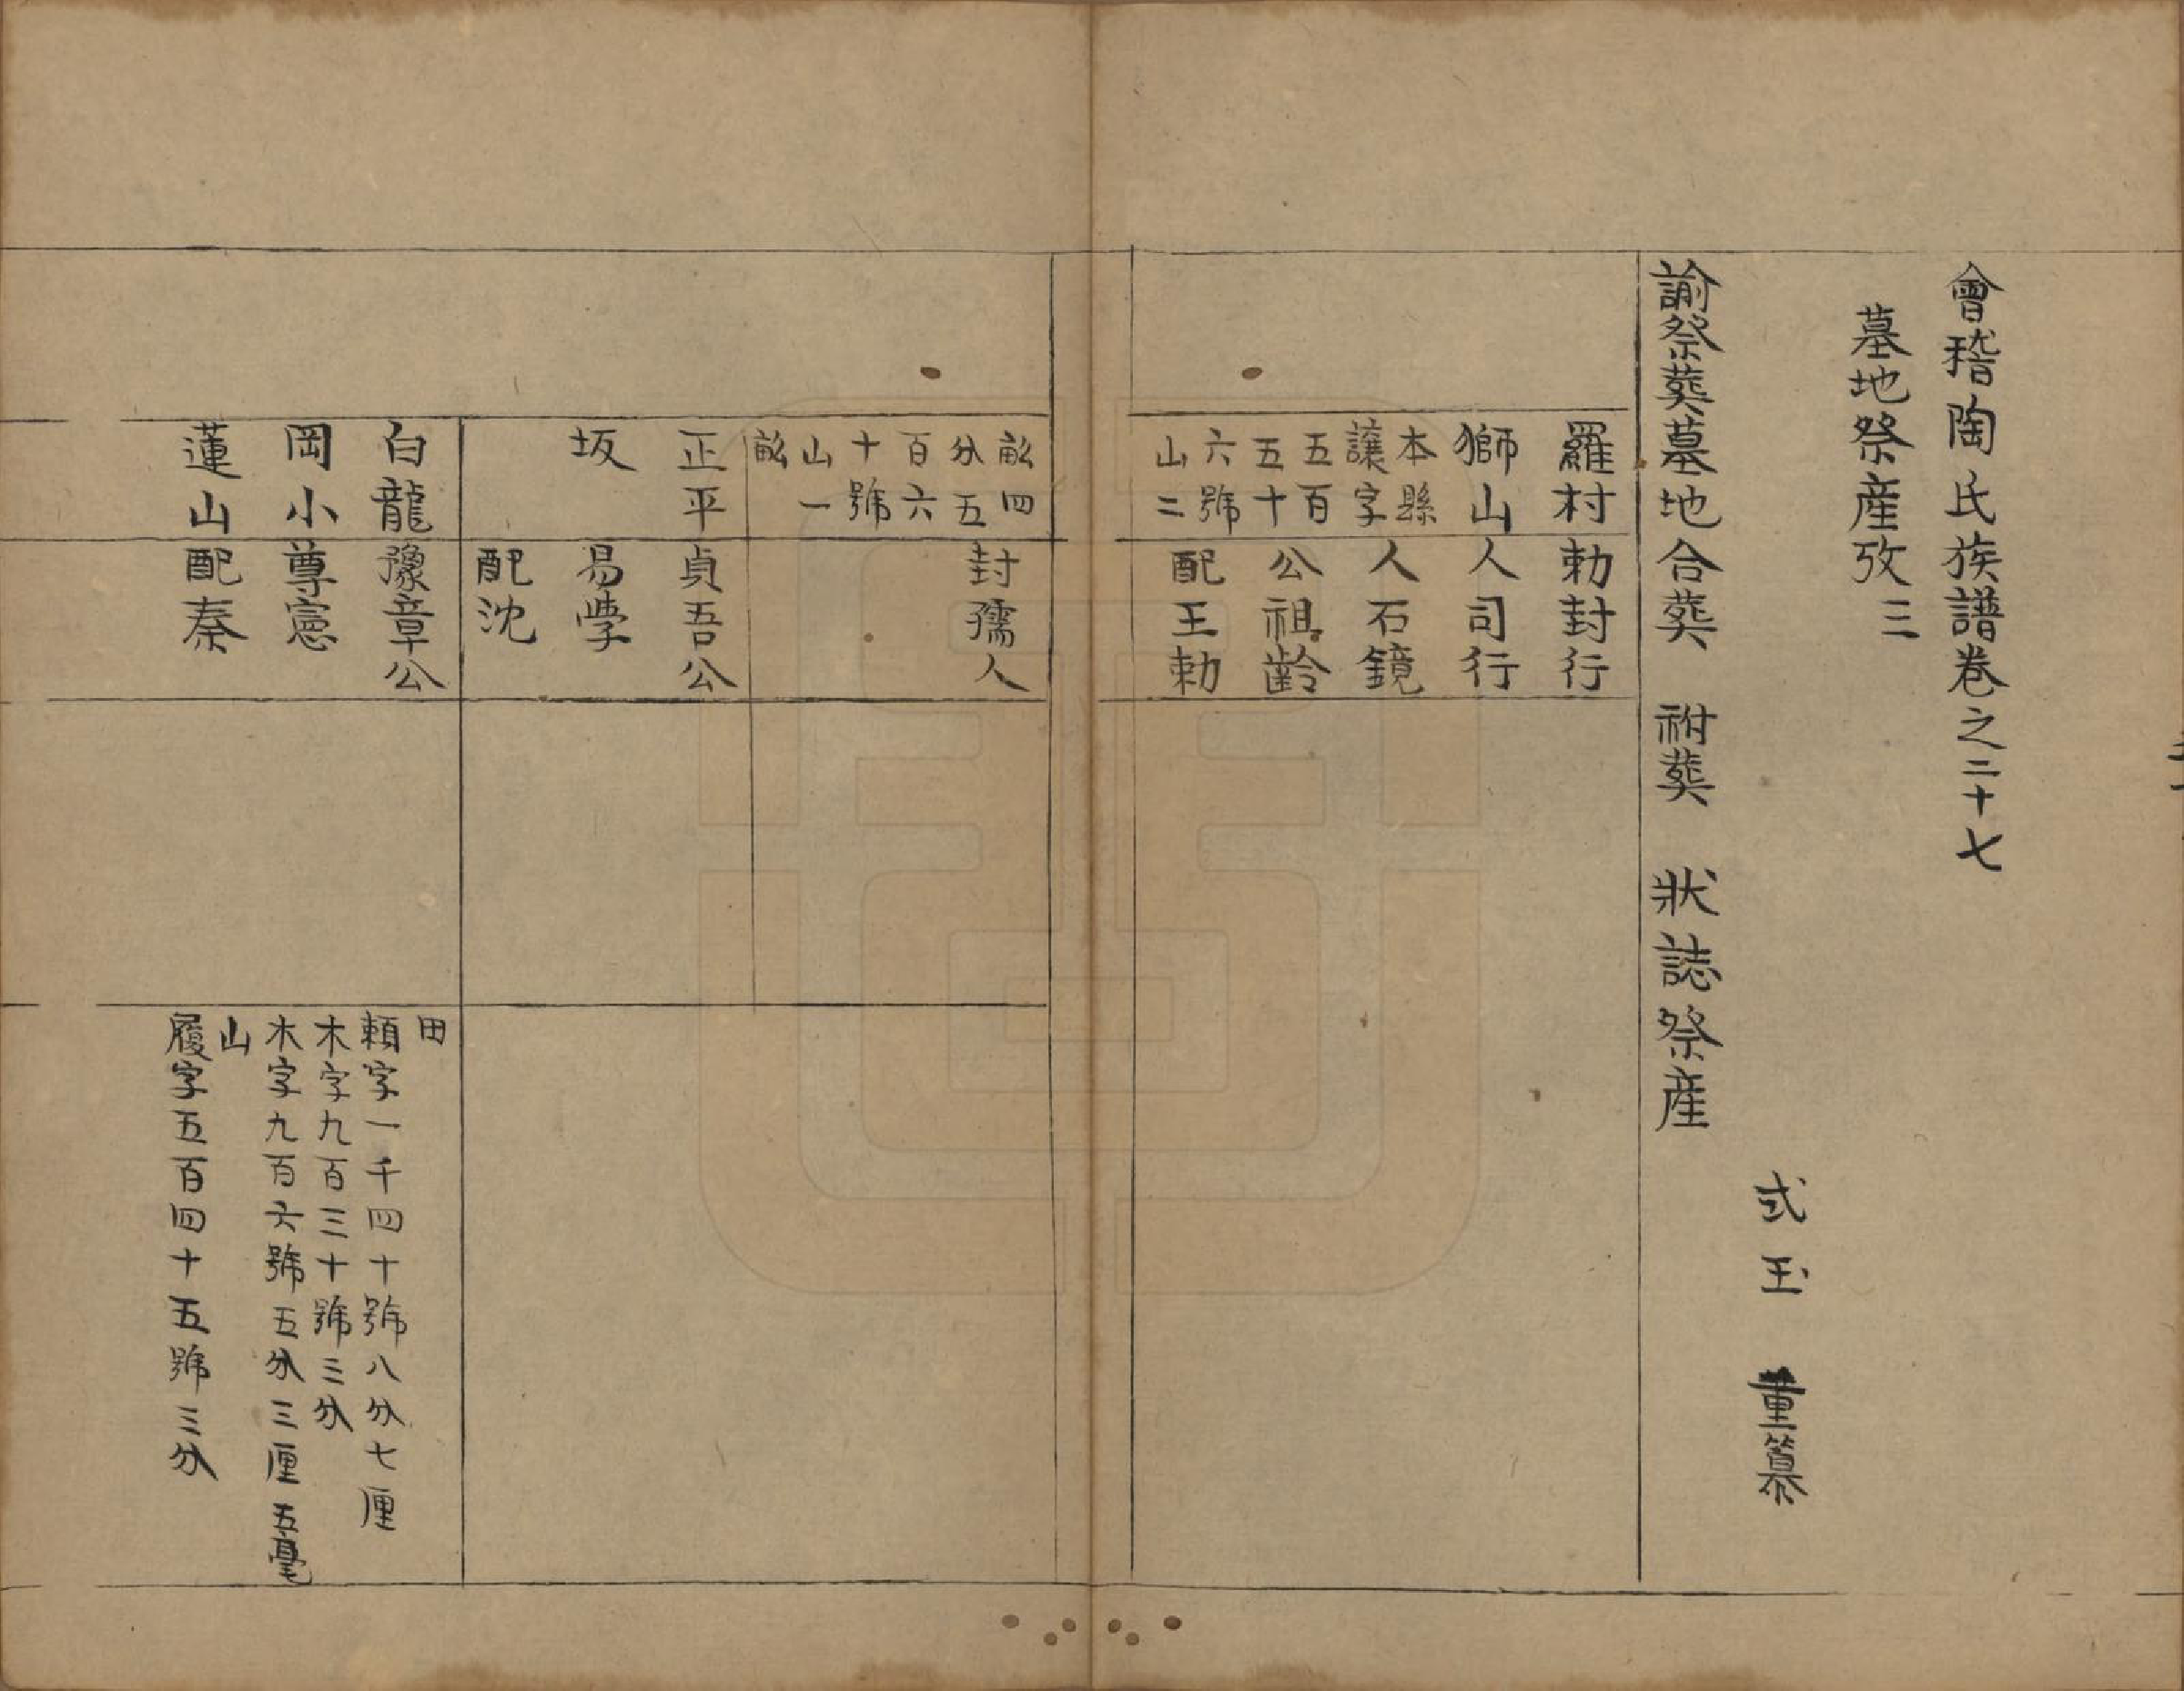 會稽陶氏族譜卷之二十七
墓地祭產攷三
式玉 重纂
諭祭葬墓地合葬 祔葬 狀誌祭產
羅村
獅山
本縣
讓字
五百
五十
六號
山二
勅封行
人司行
人石鏡
公祖齡
配王勅
畝四
分五
百六
十號
山一
畝
封孺人
正平
坂
貞吾公
易學
配沈
白龍
岡小
蓮山
豫章公
尊憲
配秦
田
賴字一千四十號八分七厘
木字九百三十號三分
木字九百六號五分三厘五毫
山
履字五百四十五號三分